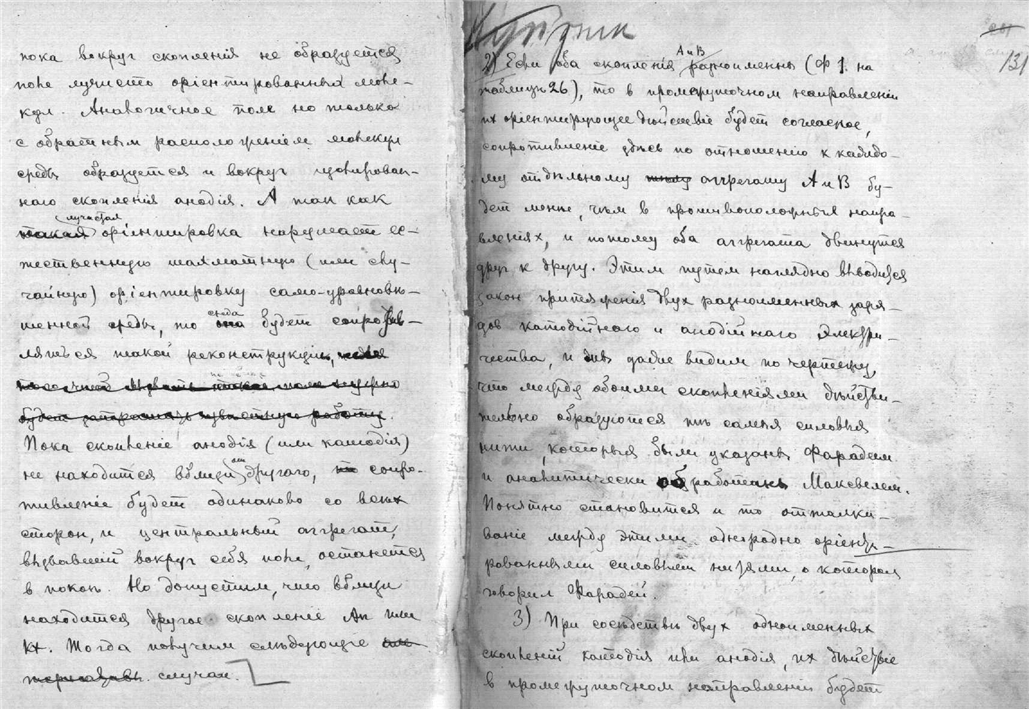 пока вокруг скопленія не образуется
поле лучисто оріентированных моле-
кул. Аналогичное поле но только
с обратным расположеніем молекул
среды образуется и вокруг изолирован-
наго скопленія анодія. А так как
такая лучистая оріентировка нарушает ес-
тественную шахматную (или слу-
чайную) оріентировку само-уравновѣ-
шенной среды, то она среда будет сопротив-
ляться такой реконструкціи,
Пока скопленіе анодія (или катодія)
не находится вблизи от другого, то сопро-
тивленіе будет одинаково со всѣх
сторон, и центральный аггрегат,
вызвавшій вокруг себя поле, останется
в покоѣ. Но допустим, что вблизи
находится другое скопленіе Ан или
Кт. Тогда получим слѣдующіе
случаи.
131
2) Если оба скопленія А и В разноименны (Ф 1. на
таблицѣ 26), то в промежуточном направленіи
их оріентирующее дѣйствіе будет согласное,
сопротивленіе здѣсь по отношенію к каждо-
му отдѣльному аггрегату А и В бу-
дет менѣе, чѣм в противоположных напра-
вленіях, и потому оба аггрегата двинутся
друг к другу. Этим путем наглядно выводится
закон притяженія двух разноименных заря-
дов катодійного и анодійного электри-
чества, и далѣе видим по чертежу,
что между обоими скопленіями дѣйстви-
тельно образуются тѣ самыя силовыя
нити, которыя были указаны Фарадеем
и аналитически обработаны Максвелем.
Понятно становится и то отталки-
ваніе между этими однородно оріенти-
рованными силовыми нитями, о котором
говорил Фарадей.
3) При сосѣдствѣ двух одноименных
скопленій катодія или анодія, их дѣйствіе
в промежуточном направленіи будет